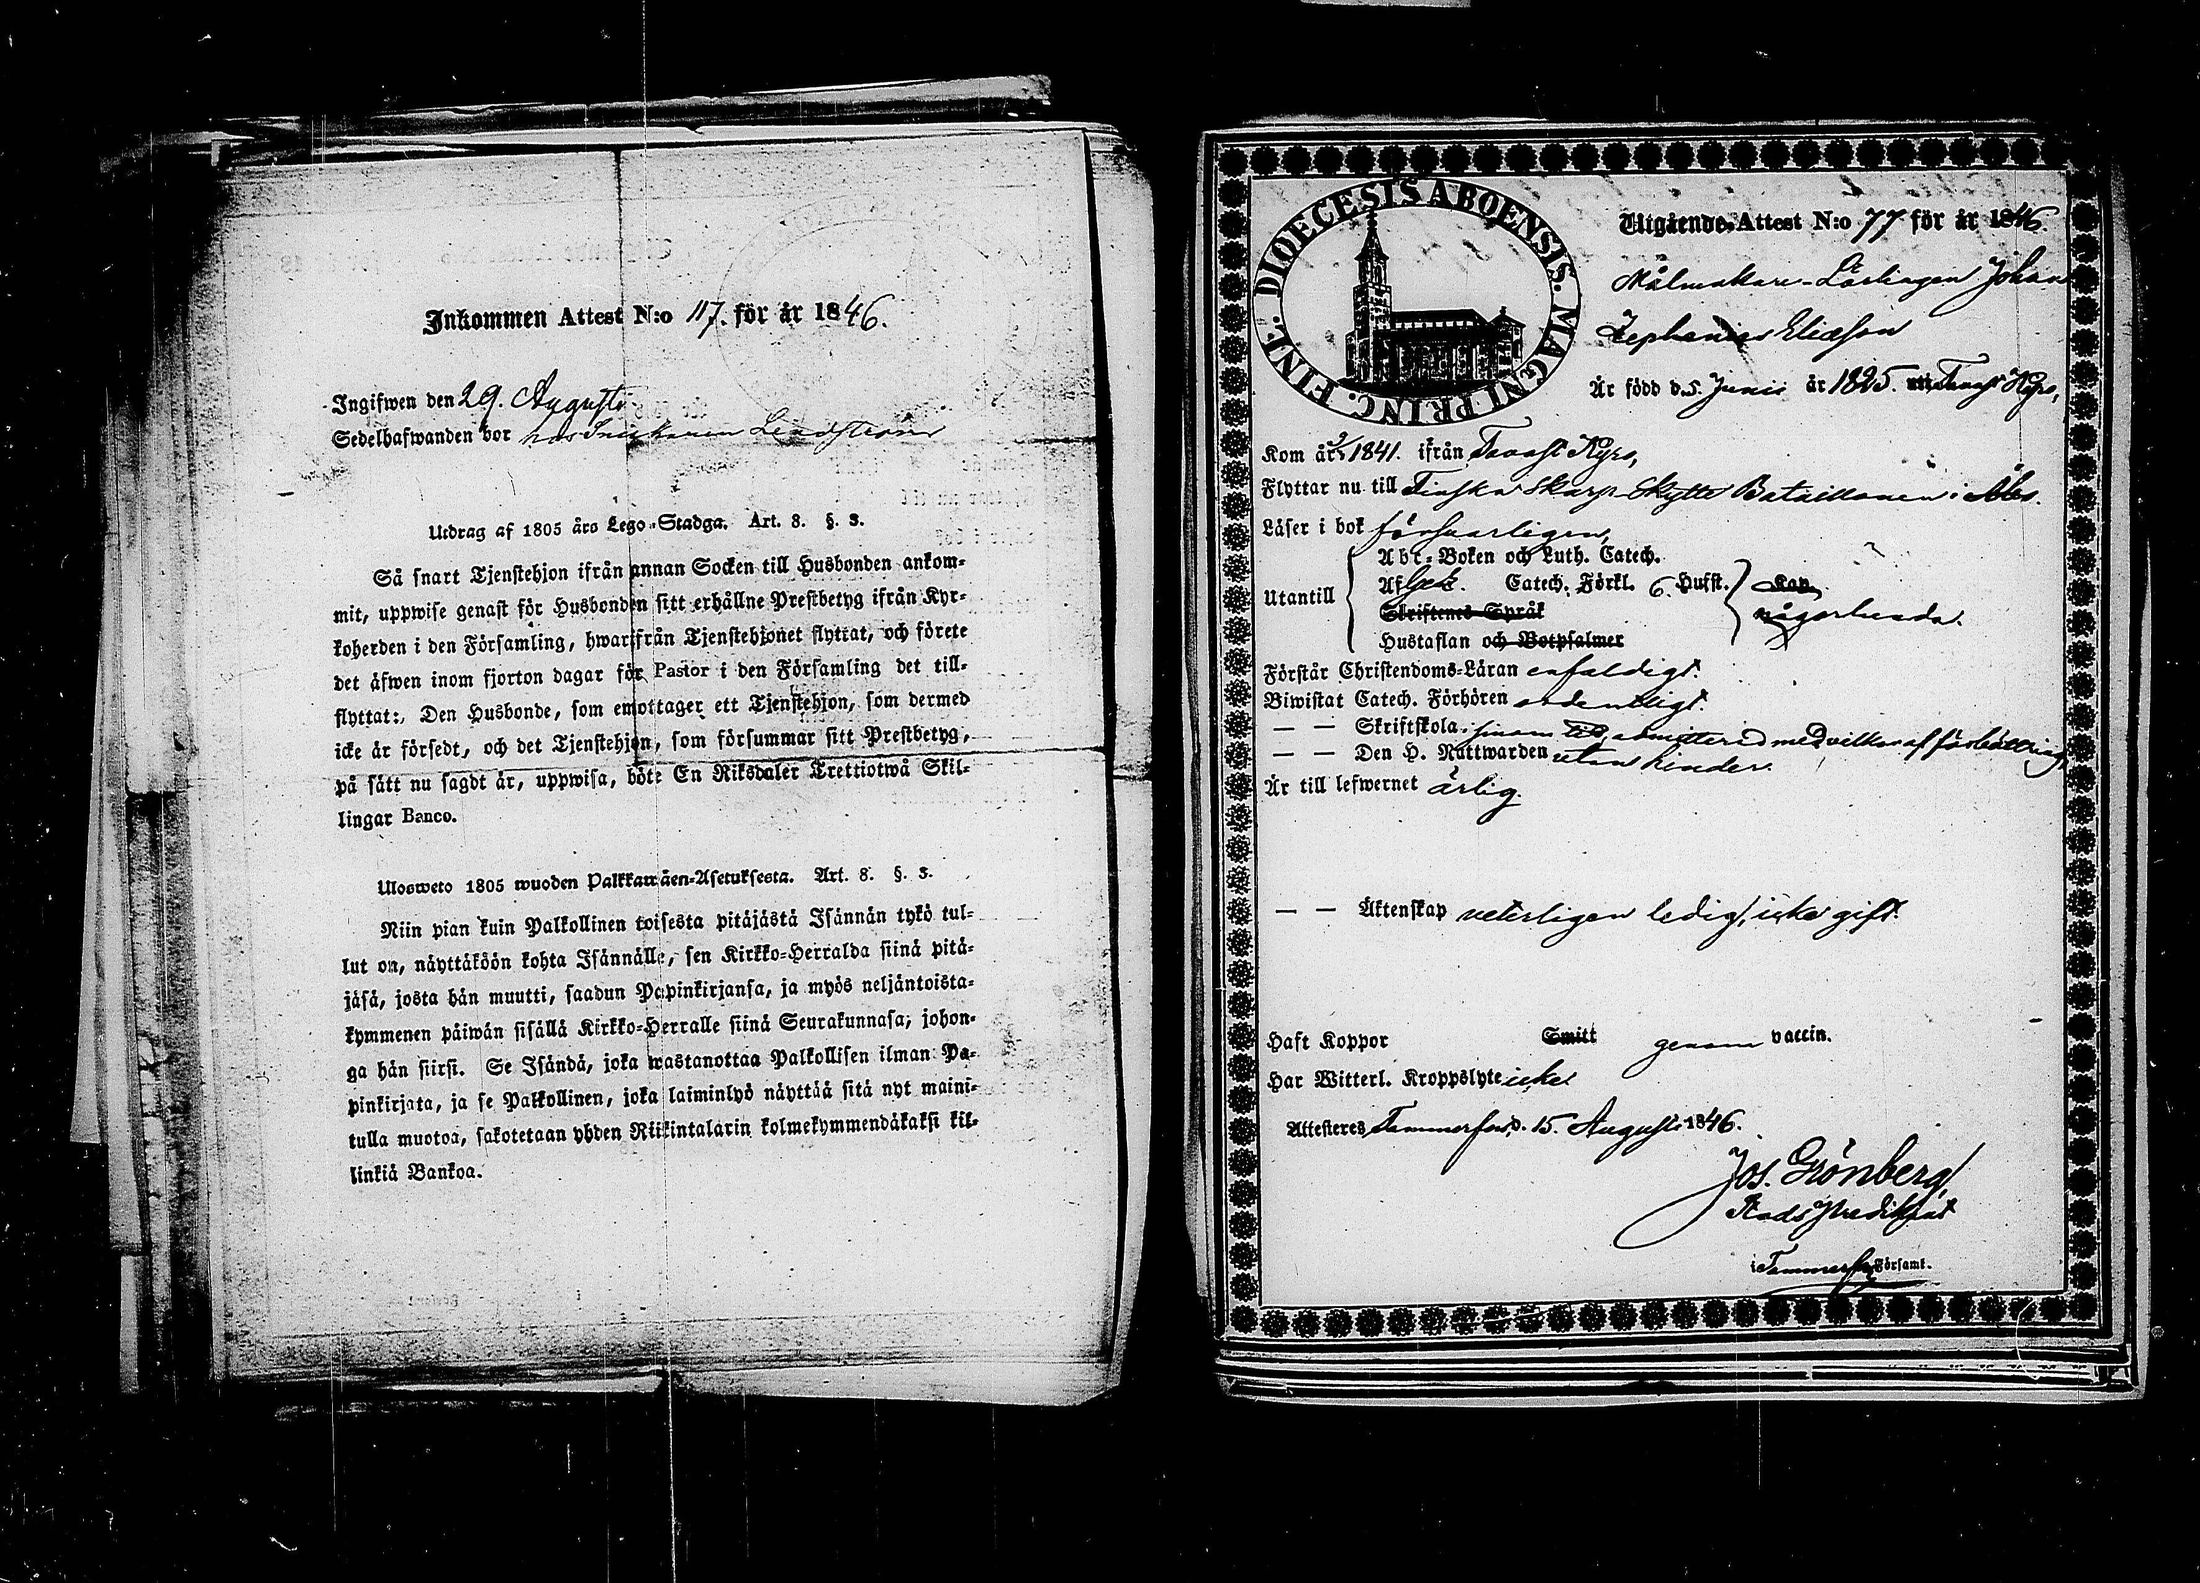 Inkommen Attest N:o 117. för år 1846.
Ingifwen den 29. Augusti
Sedelhafwanden bor hos
Utdrag af 1805 års Lego-Stadga. Art. 8. §. 3.
Så snart Tjenstehjon ifrån annan Socken till Husbonden ankom-
mit, uppwise genast för Husbonden sitt erhållne Prestbetyg ifrån Kyr-
koherden i den Församling, hwarifrån Tjenstehjonet flyttat, och förete
det äfwen inom fjorton dagar för Pastor i den Församling det till-
flyttat: Den Husbonde, som emottager ett Tjenstehjon, som dermed
icke är försedt, och det Tjenstehjon, som försummar sitt Prestbetyg,
på sätt nu sagdt är, uppwisa, böte En Riksdaler Trettiotwå Skil-
lingar Banco.
Ulosweto 1805 wuoden Palkkawäen-Asetuksesta. Art. 8. §. 3.
Niin pian kuin Palkollinen toisesta pitäjästä Isännän tykö tul-
lut on, näyttäköön kohta Isännälle, sen Kirkko-Herralda siinä pitä-
jäsä, josta hän muutti, saadun Papinkirjansa, ja myös neljäntoista-
kymmenen päiwän sisällä Kirkko-Herralle siinä Seurakunnasa, johon-
ga hän siirsi. Se Isändä, joka wastanottaa Palkollisen ilman Pa-
pinkirjata, ja se Palkollinen, joka laiminlyö näyttää sitä nyt maini-
tulla muotoa, sakotetaan yhden Riikintalarin kolmekymmendäkaksi kil-
linkiä Bankoa.
DIOECESIS ABOENSIS. MAGNI PRINC. FINL.
Utgående Attest N:o 77 för år 1846.
Målmakare-Lärlingen Johan
Zephanias Eliasson
Är född d. 5. Junii år 1825. uti Tavast Kyro,
Kom år 1841. ifrån Tavast Kyro,
Flyttar nu till Finska Skarp-Skytte Bataillonen i Åbo.
Läser i bok försvarligen,
Utantill
Abc-Boken och Luth. Catech.
Af Catech. Förkl. 6. Hufst. Kan
Skriftenes Språk någorlunda.
Hustaflan och Botpsalmer
Förstår Christendoms-Läran enfaldigt.
Biwistat Catech. Förhören ordentligt.
— — Skriftskola. admitterad med vilkor af förbättring,
— — Den H. Nattwarden utan hinder.
Är till lefwernet ärlig.
— — Äktenskap veterligen ledig, icke gift.
Haft Koppor Smitt genom vaccin.
Har Witterl. Kroppslyte icke
Attesteres Tammerfors d. 15. Augusti 1846.
Jos. Grönberg,
Stads Predikant
i Tammerfors Församl.